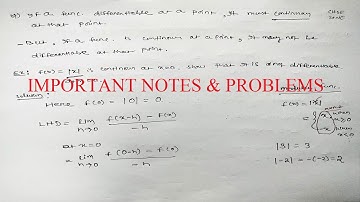 If a func. differentiable at a point, it must continuous
at that point.
- But, if a func. is continuous at a point, it may not be
differentiable at that point.
Ex: f(x) = |x| is continuous at x=0, show that it is not differentiable
IMPORTANT NOTES & PROBLEMS
solution:
Here f(0) = |0| = 0
f(x) = |x|
LHD = lim h→0 f(x-h) - f(x) / -h
at x=0
= lim h→0 f(0-h) - f(0) / -h
|3| = 3
|-2| = -(-2) = 2